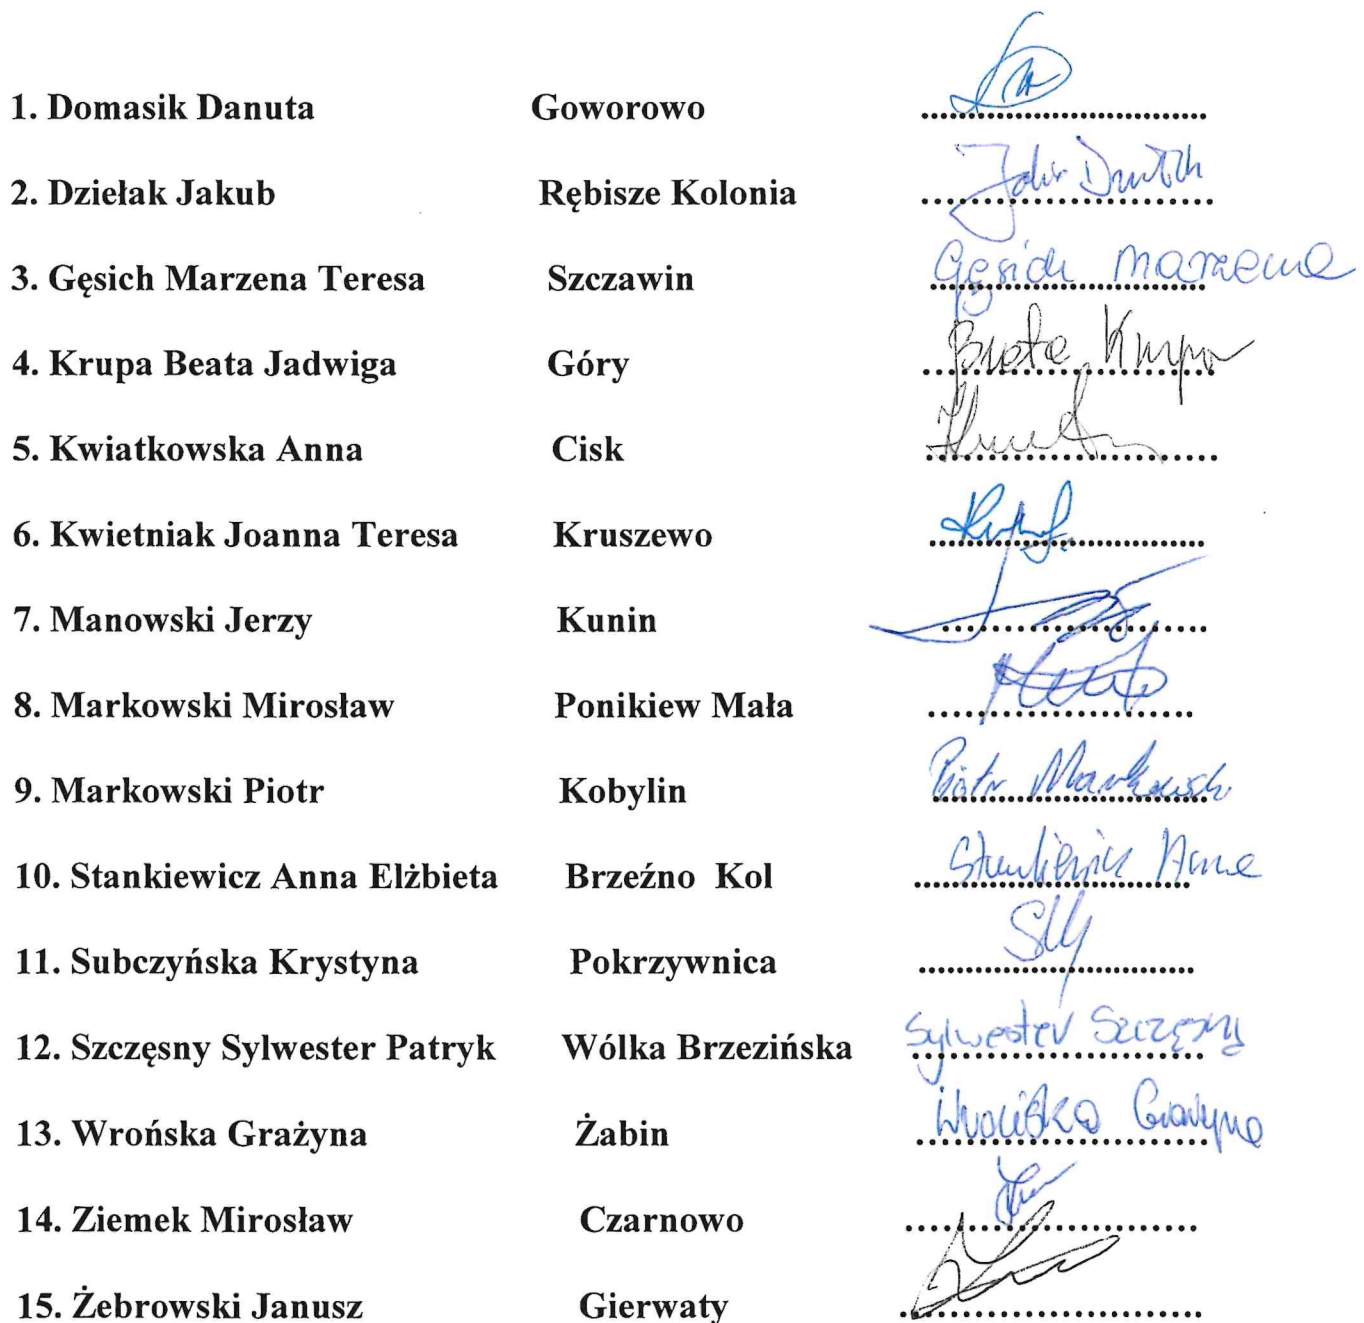 1. Domasik Danuta Goworowo ..............................
2. Dziełak Jakub Rębisze Kolonia ..............................
3. Gęsich Marzena Teresa Szczawin Gęsich Marzena
4. Krupa Beata Jadwiga Góry Beata Krupa
5. Kwiatkowska Anna Cisk ..............................
6. Kwietniak Joanna Teresa Kruszewo ..............................
7. Manowski Jerzy Kunin ..............................
8. Markowski Mirosław Ponikiew Mała ..............................
9. Markowski Piotr Kobylin Piotr Markowski
10. Stankiewicz Anna Elżbieta Brzeźno Kol Stankiewicz Anna
11. Subczyńska Krystyna Pokrzywnica ..............................
12. Szczęsny Sylwester Patryk Wólka Brzezińska Sylwester Szczęsny
13. Wrońska Grażyna Żabin Wrońska Grażyna
14. Ziemek Mirosław Czarnowo ..............................
15. Żebrowski Janusz Gierwaty ..............................